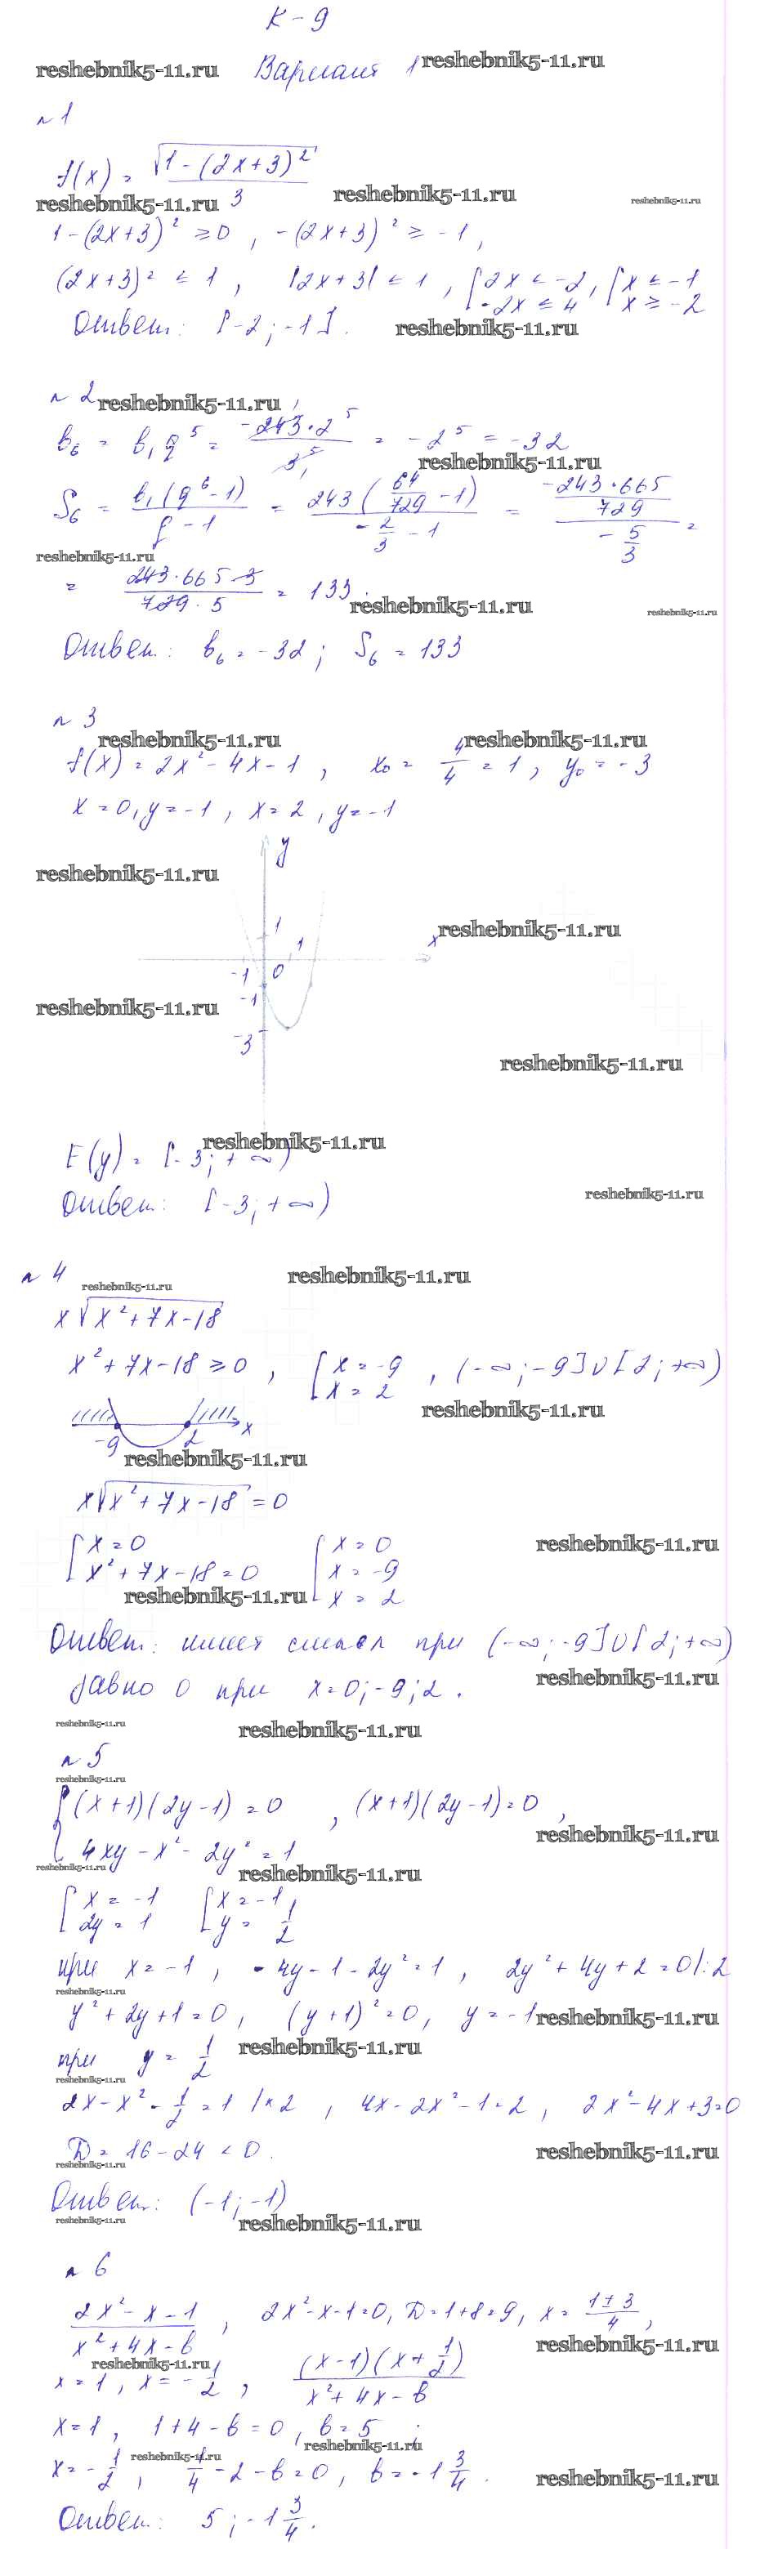 К-9
reshebnik5-11.ru Вариант 1 reshebnik5-11.ru
№1
f(x) = √(1-(2x+3)²) / 3
reshebnik5-11.ru reshebnik5-11.ru reshebnik5-11.ru
1-(2x+3)² ≥ 0, -(2x+3)² ≥ -1,
(2x+3)² ≤ 1, |2x+3| ≤ 1, [2x ≤ -2 -2x ≤ 4, [x ≤ -1 x ≥ -2
Ответ: [-2; -1]. reshebnik5-11.ru
№2 reshebnik5-11.ru
b₆ = b₁q⁵ = -243·2⁵ / 3⁵ = -2⁵ = -32
reshebnik5-11.ru
S₆ = b₁(q⁶-1) / q-1 = 243(64/729 -1) / -2/3 -1 = -243·665/729 / -5/3 =
reshebnik5-11.ru
= 243·665·3 / 729·5 = 133.
reshebnik5-11.ru reshebnik5-11.ru
Ответ: b₆ = -32; S₆ = 133
№3
reshebnik5-11.ru reshebnik5-11.ru
f(x) = 2x²-4x-1, x₀ = 4/4 = 1, y₀ = -3
x=0, y=-1, x=2, y=-1
y
reshebnik5-11.ru
1
x reshebnik5-11.ru
1
-1 0
-1
reshebnik5-11.ru
-3
reshebnik5-11.ru
reshebnik5-11.ru
E(y) = [-3; +∞)
Ответ: [-3; +∞) reshebnik5-11.ru
№4
reshebnik5-11.ru reshebnik5-11.ru
x√(x²+7x-18)
x²+7x-18 ≥ 0, [x=-9 x=2, (-∞; -9]∪[2; +∞)
reshebnik5-11.ru
-9 2 x
reshebnik5-11.ru
x√(x²+7x-18) = 0
[x=0 x²+7x-18=0 [x=0 x=-9 x=2
reshebnik5-11.ru
reshebnik5-11.ru
Ответ: имеет смысл при (-∞; -9]∪[2; +∞)
равно 0 при x=0; -9; 2.
reshebnik5-11.ru
reshebnik5-11.ru reshebnik5-11.ru
№5
reshebnik5-11.ru
{(x+1)(2y-1)=0, (x+1)(2y-1)=0,
reshebnik5-11.ru
4xy-x²-2y²=1
reshebnik5-11.ru reshebnik5-11.ru
[x=-1 2y=1 [x=-1 y=1/2
при x=-1, -4y-1-2y²=1, 2y²+4y+2=0|:2
reshebnik5-11.ru
y²+2y+1=0, (y+1)²=0, y=-1 reshebnik5-11.ru
при y=1/2 reshebnik5-11.ru
reshebnik5-11.ru
2x-x²-1/2=1 |×2, 4x-2x²-1=2, 2x²-4x+3=0
D=16-24<0. reshebnik5-11.ru
reshebnik5-11.ru
Ответ: (-1; -1)
reshebnik5-11.ru reshebnik5-11.ru
№6
2x²-x-1 / x²+4x-b, 2x²-x-1=0, D=1+8=9, x=1±3/4,
reshebnik5-11.ru
reshebnik5-11.ru
x=1, x=-1/2, (x-1)(x+1/2) / x²+4x-b
x=1, 1+4-b=0, b=5;
reshebnik5-11.ru
reshebnik5-11.ru
x=-1/2, 1/4-2-b=0, b=-1 3/4. reshebnik5-11.ru
Ответ: 5; -1 3/4.